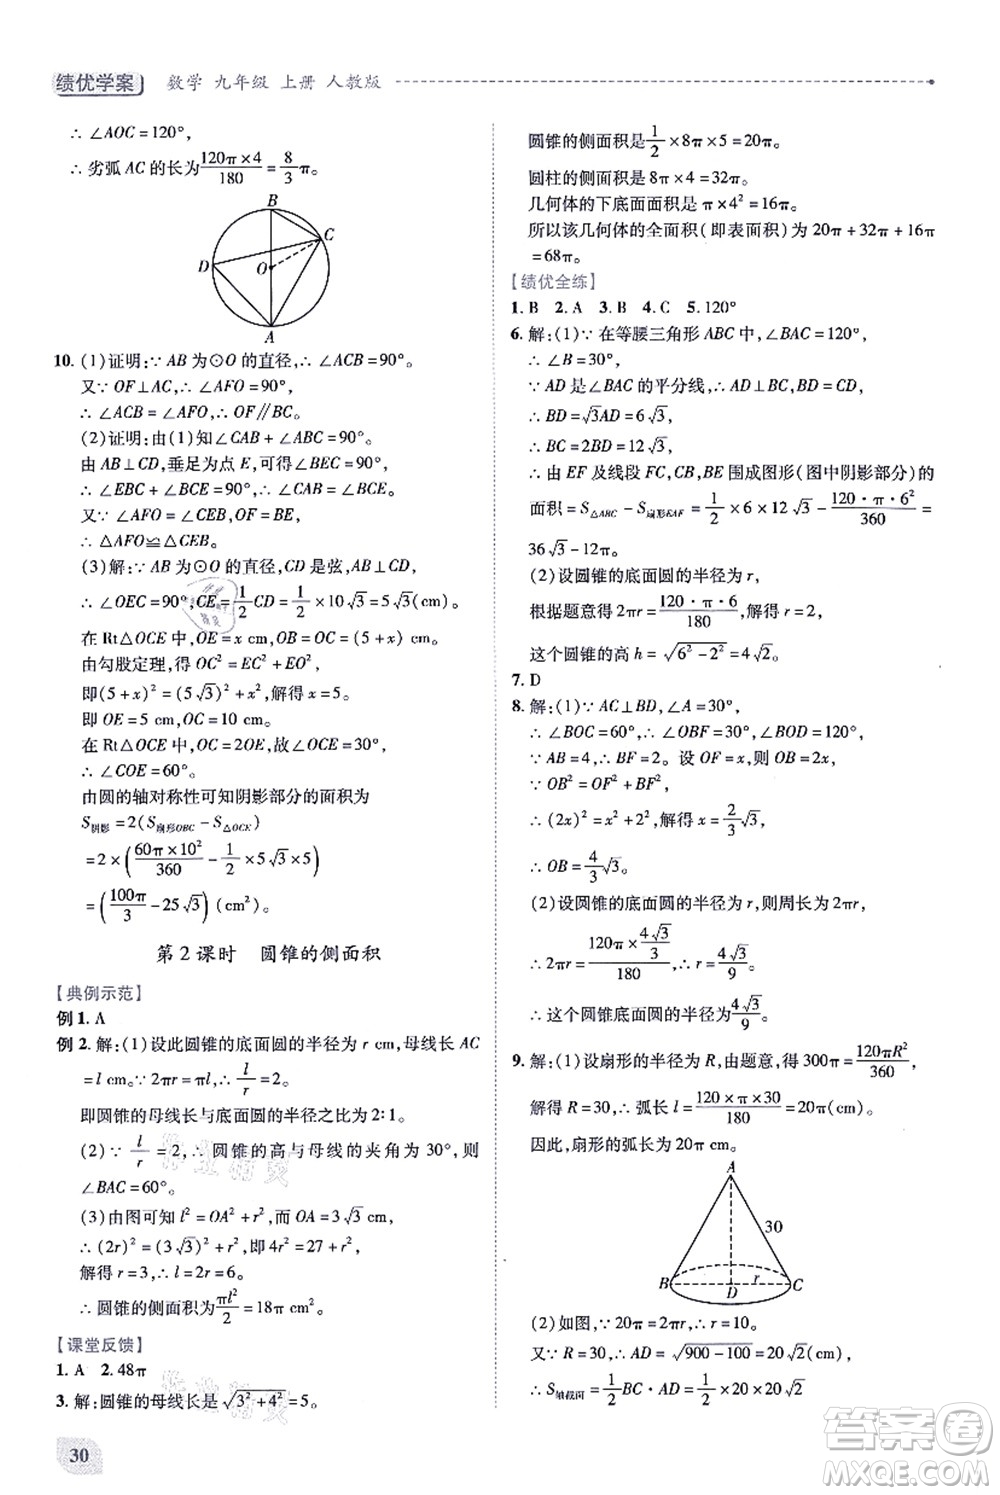 绩优学案 数学 九年级 上册 人教版
∴ ∠AOC=120°,
∴ 劣弧 AC 的长为 120π×4/180 = 8/3 π。
B
C
D
O
A
10. (1)证明:∵ AB 为⊙O 的直径,∴ ∠ACB=90°。
又∵ OF⊥AC,∴ ∠AFO=90°,
∴ ∠ACB=∠AFO,∴ OF∥BC。
(2)证明:由(1)知∠CAB+∠ABC=90°。
由 AB⊥CD,垂足为点 E,可得∠BEC=90°,
∴ ∠EBC+∠BCE=90°,∴ ∠BCE=∠CAB。
又∵ ∠AFO=∠CEB,OF=BE,
∴ △AFO≌△CEB。
(3)解:∵ AB 为⊙O 的直径,CD 是弦,AB⊥CD,
∴ ∠OEC=90°,CE=1/2 CD=1/2×10√3=5√3(cm)。
在 Rt△OCE 中,OE=x cm,OB=OC=(5+x)cm,
由勾股定理,得 OC²=EC²+EO²,
即(5+x)²=(5√3)²+x²,解得 x=5。
即 OE=5 cm,OC=10 cm。
在 Rt△OCE 中,OC=2OE,故∠OCE=30°,
∴ ∠COE=60°。
由圆的轴对称性可知阴影部分的面积为
S阴影=2(S扇形OBC-S△OCE)
=2×(60π×10²/360-1/2×5√3×5)
=(100π/3-25√3)(cm²)。
第 2 课时 圆锥的侧面积
【典例示范】
例 1. A
例 2. 解:(1)设此圆锥的底面圆的半径为 r cm,母线长 AC
=l cm。∵ 2πr=πl,∴ l/r=2。
即圆锥的母线长与底面圆的半径之比为 2∶1。
(2)∵ l/r=2,∴ 圆锥的高与母线的夹角为 30°,则
∠BAC=60°。
(3)由图可知 l²=OA²+r²,而 OA=3√3 cm,
∴ (2r)²=(3√3)²+r²,即 4r²=27+r²,
解得 r=3,∴ l=2r=6。
∴ 圆锥的侧面积为πl²/2=18π(cm²)。
【课堂反馈】
1. A 2. 48π
3. 解:圆锥的母线长是√(3²+4²)=5。
30
圆锥的侧面积是1/2×8π×5=20π。
圆柱的侧面积是 8π×4=32π。
几何体的下底面面积是 π×4²=16π。
所以该几何体的全面积(即表面积)为 20π+32π+16π
=68π。
【绩优全练】
1. B 2. A 3. B 4. C 5. 120°
6. 解:(1)∵ 在等腰三角形 ABC 中,∠BAC=120°,
∴ ∠B=30°,
∵ AD 是∠BAC 的平分线,∴ AD⊥BC,BD=CD,
∴ BD=√3AD=6√3,
∴ BC=2BD=12√3,
∴ 由 EF 及线段 FC,CB,BE 围成图形(图中阴影部分)的
面积=S△ABC-S扇形EAF=1/2×6×12√3-120·π·6²/360=
36√3-12π。
(2)设圆锥的底面圆的半径为 r,
根据题意得 2πr=120·π·6/180,解得 r=2,
这个圆锥的高 h=√(6²-2²)=4√2。
7. D
8. 解:(1)∵ AC⊥BD,∠A=30°,
∴ ∠BOC=60°,∴ ∠OBF=30°,∠BOD=120°,
∵ AB=4,∴ BF=2。设 OF=x,则 OB=2x,
∵ OB²=OF²+BF²,
∴ (2x)²=x²+2²,解得 x=2/3 √3,
∴ OB=4/3 √3。
(2)设圆锥的底面圆的半径为 r,则周长为 2πr,
∴ 2πr=(120π×4√3/3)/180,∴ r=4√3/9。
∴ 这个圆锥底面圆的半径为4√3/9。
9. 解:(1)设扇形的半径为 R,由题意,得 300π=120πR²/360,
解得 R=30,∴ 弧长 l=120×π×30/180=20π(cm)。
因此,扇形的弧长为 20π cm。
A
30
B
D
r
C
(2)如图,∵ 20π=2πr,∴ r=10。
又∵ R=30,∴ AD=√(900-100)=20√2(cm),
∴ S轴截面=1/2 BC·AD=1/2×2×10×20√2
答案圈
MXQE.COM